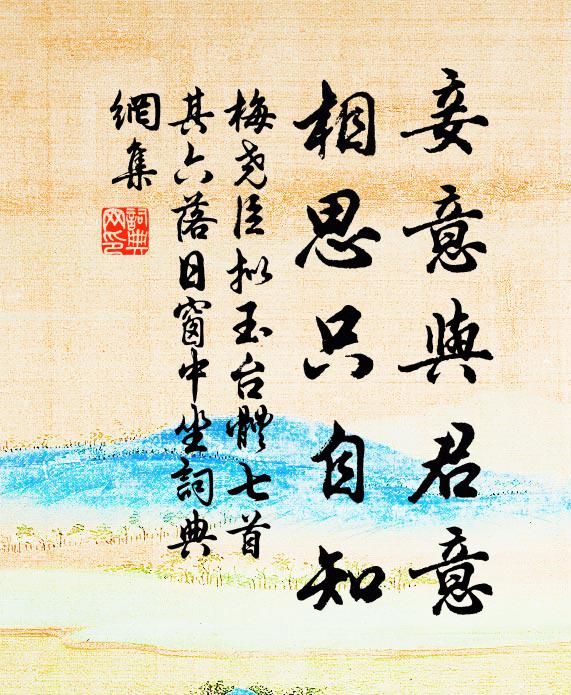 妾意與君意
相思只自知
梅尧臣拟玉台體七首
其六落日窗中坐詞典
網集
詞典
网印